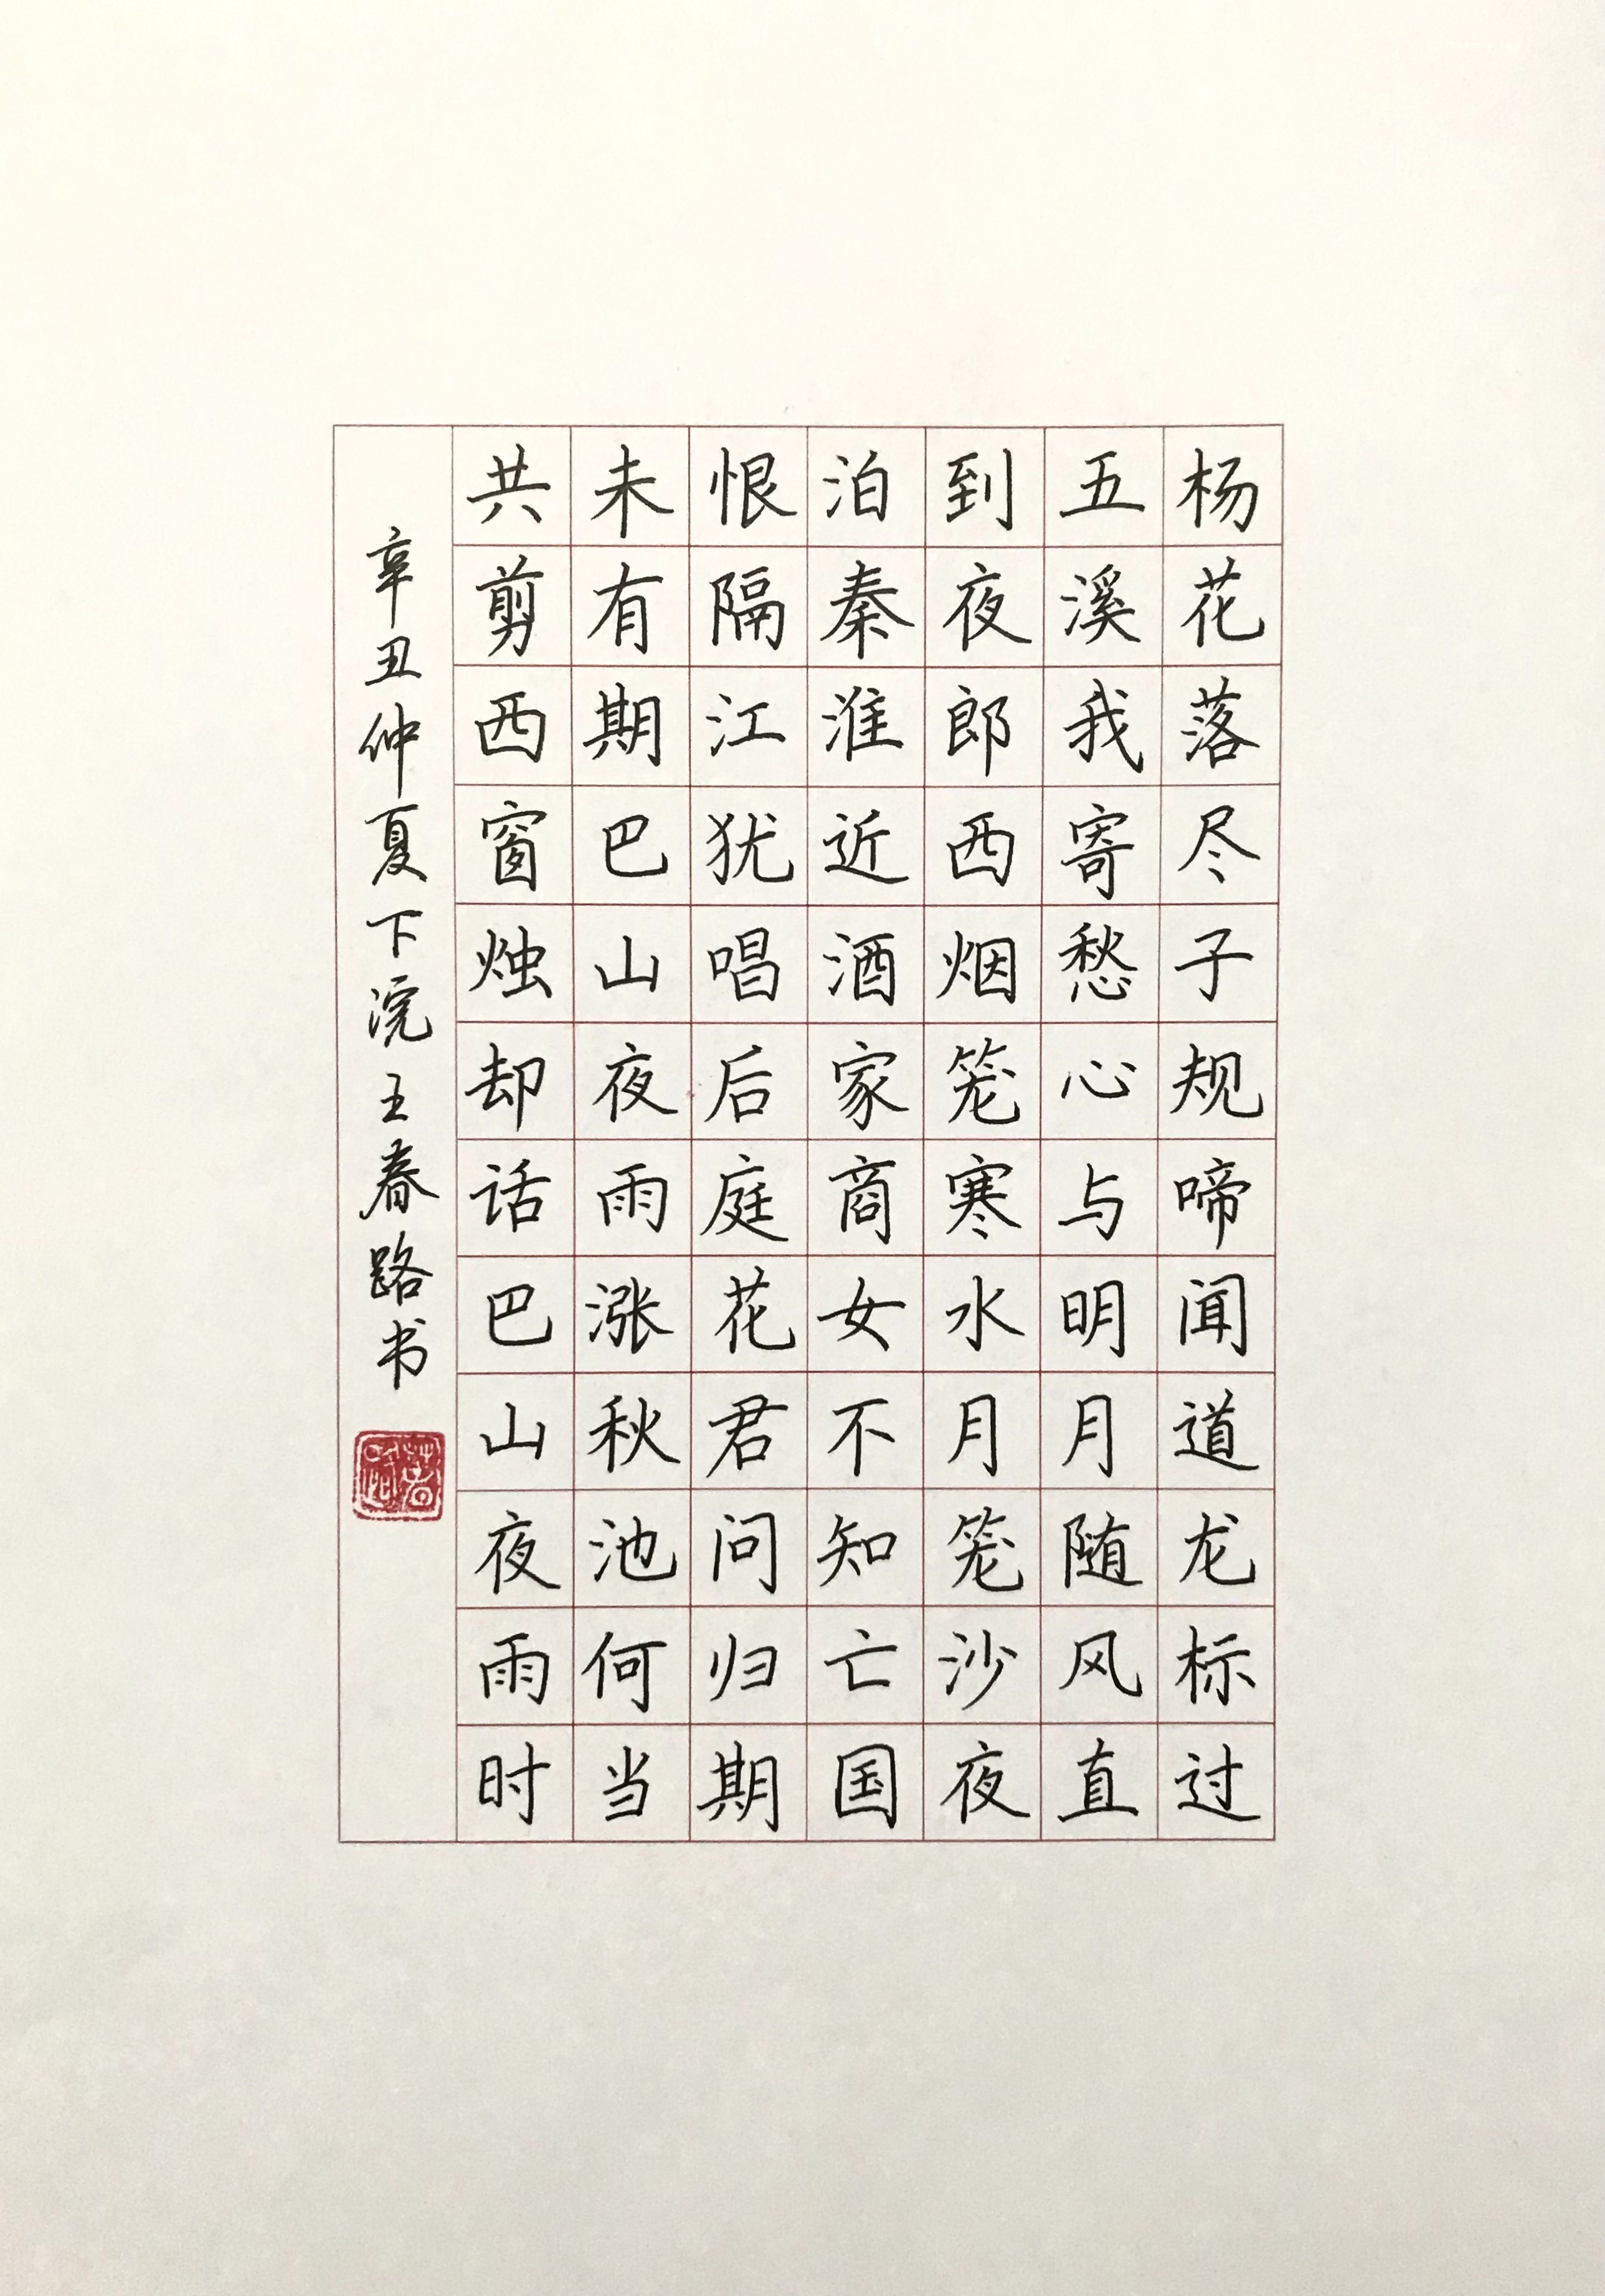 杨花落尽子规啼闻道龙标过
五溪我寄愁心与明月随风直
到夜郎西烟笼寒水月笼沙夜
泊秦淮近酒家商女不知亡国
恨隔江犹唱后庭花君问归期
未有期巴山夜雨涨秋池何当
共剪西窗烛却话巴山夜雨时
辛丑仲夏下浣王春路书